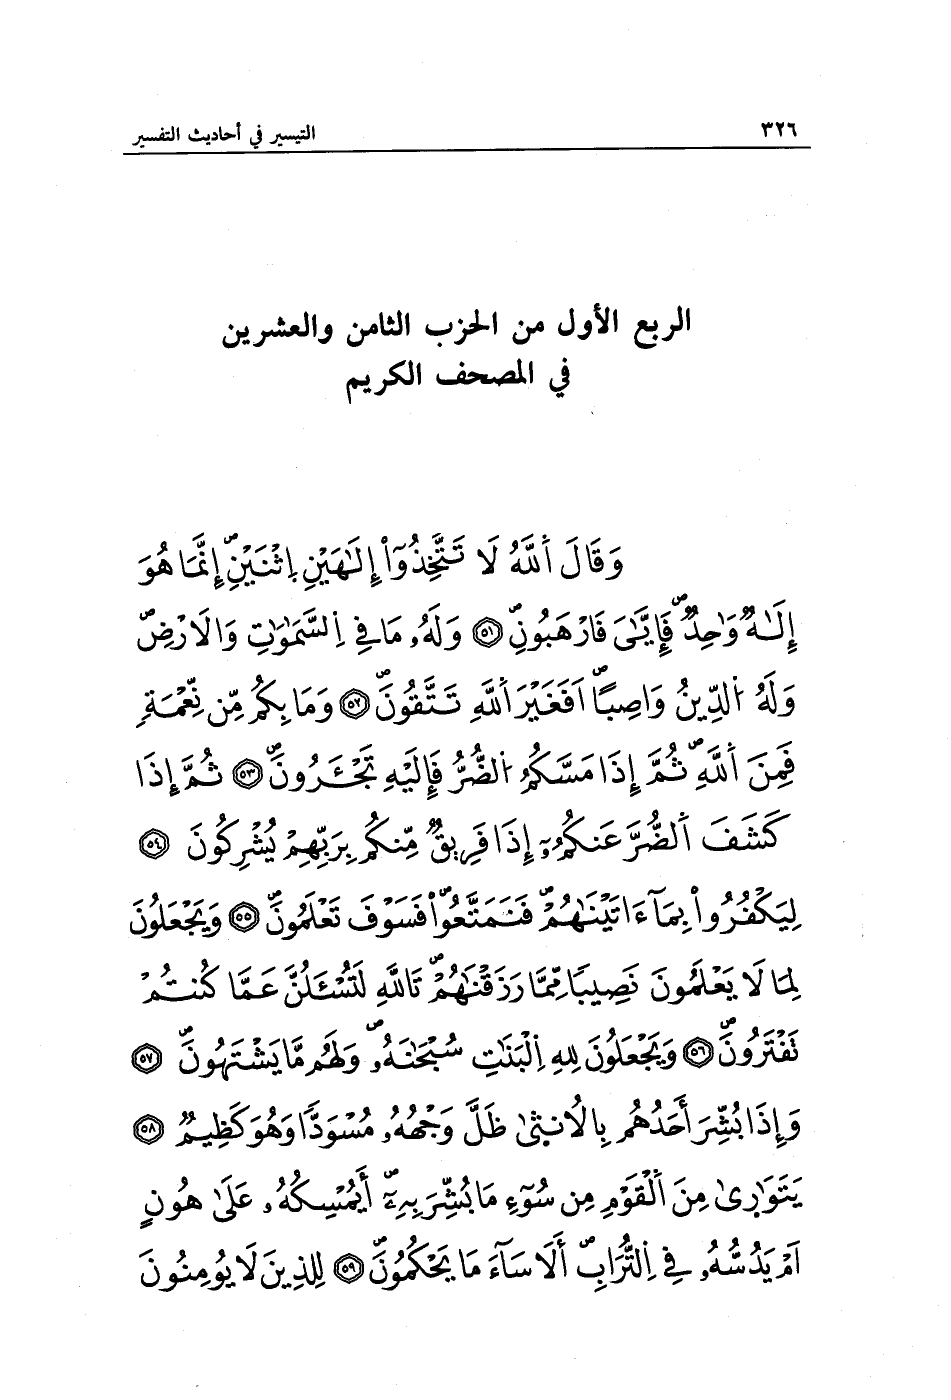 ٣٢٦ التيسير في أحاديث التفسير
الربع الأول من الحزب الثامن والعشرين
في المصحف الكريم
وَقَالَ اَ۬للَّهُ لَا تَتَّخِذُوٓاْ إِلَٰهَيْنِ اِ۪ثْنَيْنِۖ إِنَّمَا هُوَ
إِلَٰهٞ وَٰحِدٞۖ فَإِيَّٰيَ فَارْهَبُونِۖ ٥١ وَلَهُۥ مَا فِي اِ۬لسَّمَٰوَٰتِ وَالَارْضِۖ
وَلَهُ اُ۬لدِّينُ وَاصِباًۖ اَفَغَيْرَ اَ۬للَّهِ تَتَّقُونَۖ ٥٢ وَمَا بِكُم مِّن نِّعْمَةٖ
فَمِنَ اَ۬للَّهِۖ ثُمَّ إِذَا مَسَّكُمُ اُ۬لضُّرُّ فَإِلَيْهِ تَجْـَٔرُونَۖ ٥٣ ثُمَّ إِذَا
كَشَفَ اَ۬لضُّرَّ عَنكُمُۥٓ إِذَا فَرِيقٞ مِّنكُم بِرَبِّهِمْ يُشْرِكُونَ ٥٤
لِيَكْفُرُواْ بِمَآ ءَاتَيْنَٰهُمْۖ فَتَمَتَّعُواْۖ فَسَوْفَ تَعْلَمُونَۖ ٥٥ وَيَجْعَلُونَ
لِمَا لَا يَعْلَمُونَ نَصِيباٗ مِّمَّا رَزَقْنَٰهُمْۖ تَاللَّهِ لَتُسْـَٔلُنَّ عَمَّا كُنتُمْ
تَفْتَرُونَۖ ٥٦ وَيَجْعَلُونَ لِلهِ اِ۬لْبَنَٰتِ سُبْحَٰنَهُۥۖ وَلَهُم مَّا يَشْتَهُونَۖ ٥٧
وَإِذَا بُشِّرَ أَحَدُهُم بِالُانث۪ىٰ ظَلَّ وَجْهُهُۥ مُسْوَدّاٗ وَهُوَ كَظِيمٞ ٥٨
يَتَوَٰر۪ىٰ مِنَ اَ۬لْقَوْمِ مِن سُوٓءِ مَا بُشِّرَ بِهِۦٓۖ أَيُمْسِكُهُۥ عَلَىٰ هُونٍ
اَمْ يَدُسُّهُۥ فِي اِ۬لتُّرَابِۖ أَلَا سَآءَ مَا يَحْكُمُونَۖ ٥٩ لِلذِينَ لَا يُومِنُونَ